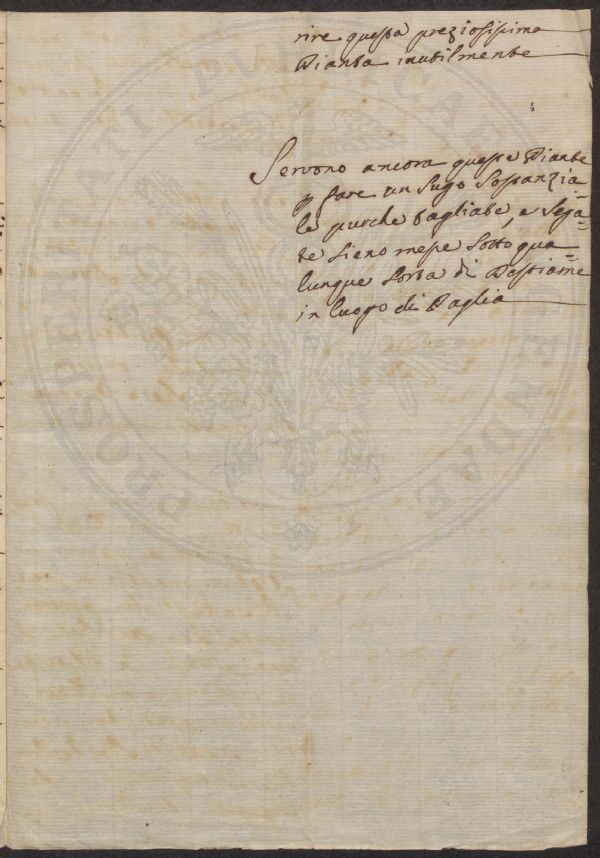 rire questa preziosissima
Pianta inutilmente
Servono ancora queste Piante
p fare un Sugo Sostanzia=
le purche tagliate, e Sega=
te sieno messe sotto qua=
lunque sorta di Bestiame
in luogo di Paglia
PROSPERITATI PUBLICAE AUGENDAE